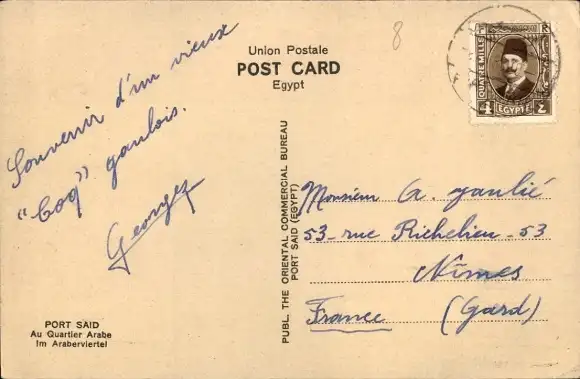 Union Postale
POST CARD
Egypt
8
Souvenir d'un vieux
"Coq" gaulois.
Georges
PORT SAID
Au Quartier Arabe
Im Araberviertel
PUBL. THE ORIENTAL COMMERCIAL BUREAU
PORT SAID (EGYPT)
QUATRE MILLS
4 EGYPTE ٤
Monsieur A. Gaulié
53 - rue Richelieu - 53
Nîmes
France (Gard)